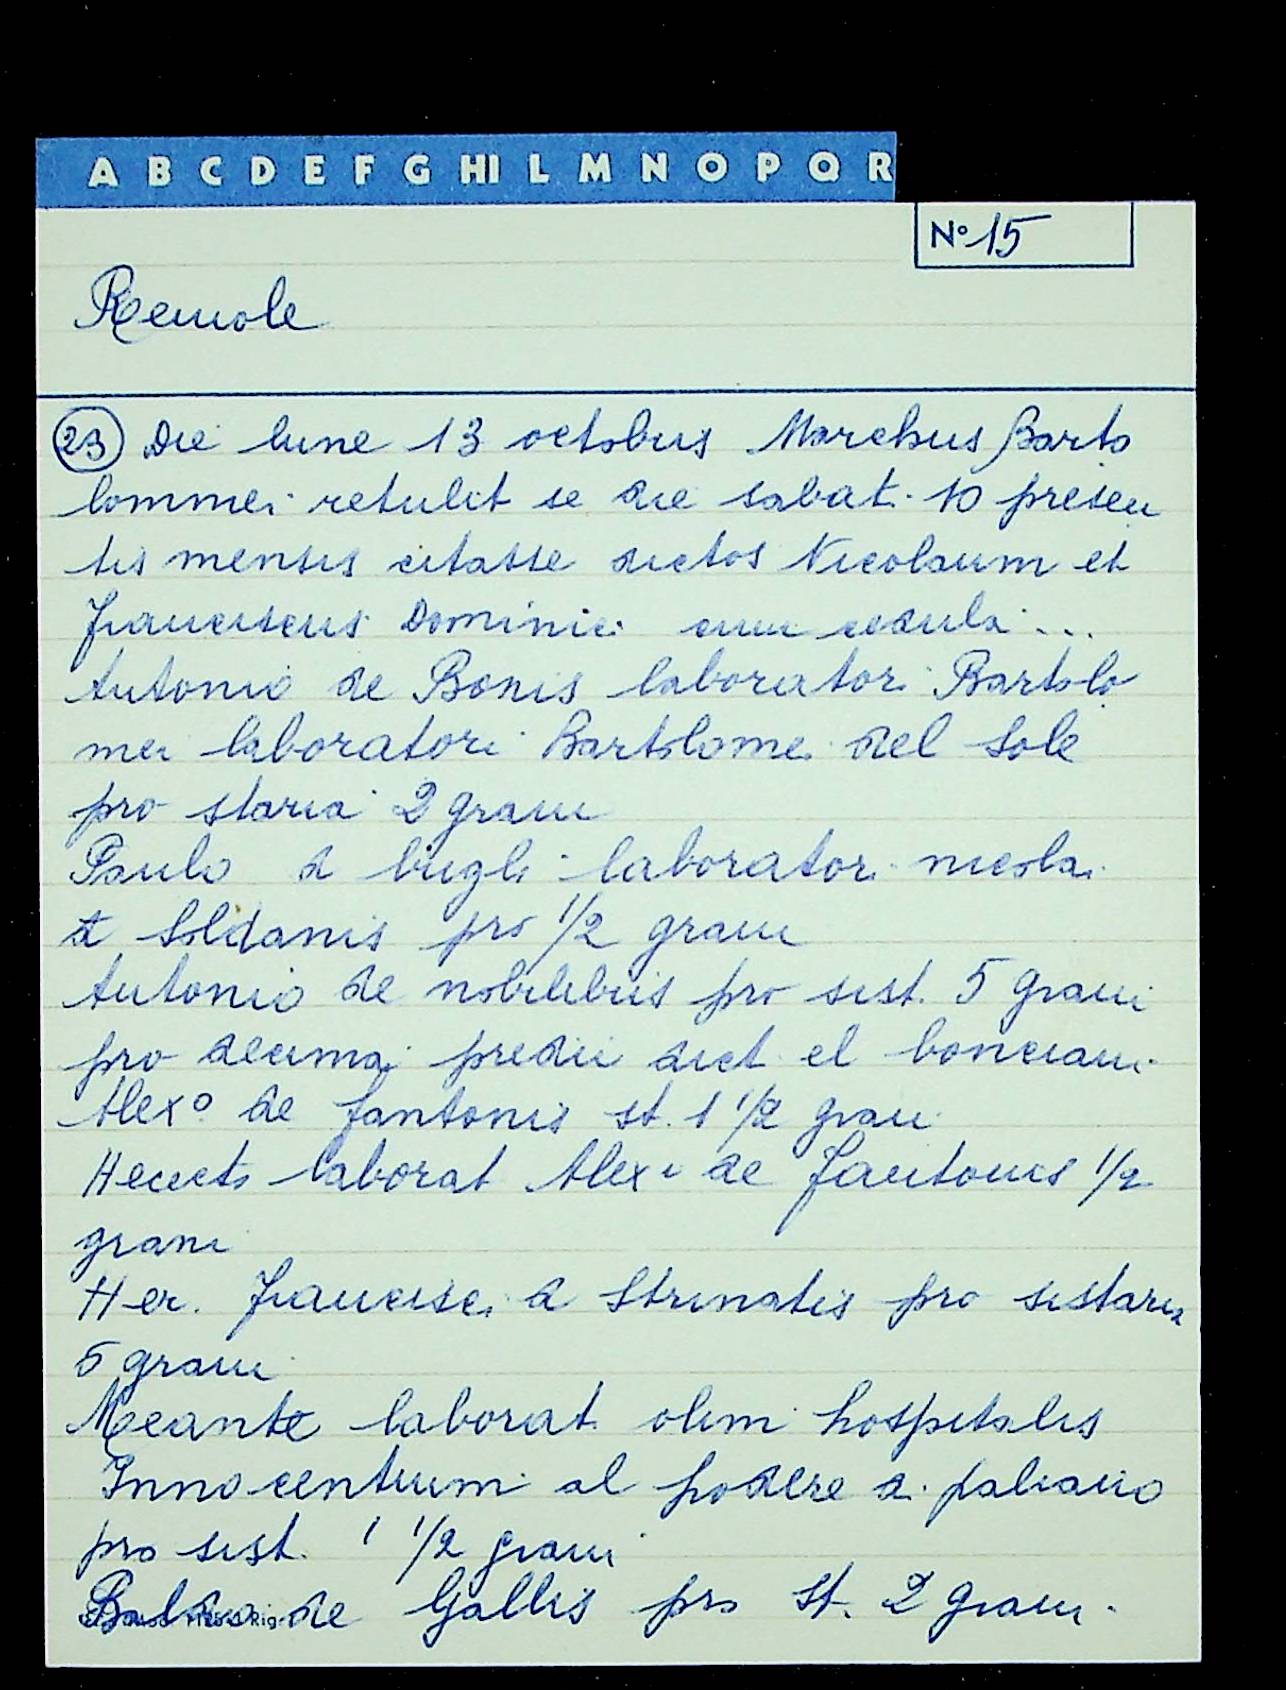 A B C D E F G HI L M N O P Q R
N° 15
Remole
23 Die lune 13 octobris Marchus Barto
lommei retulit se die sabat. 10 presen
tis mensis citasse dictos Nicolaum et
franciscus Dominici cum cedula ...
Antonio de Bonis laboratori Bartolo
mei laboratori Bartolomei del Sole
pro staria 2 grani
Paulo d laboratori nicolai
d Soldanis pro 1/2 grani
Antonio de nobilibus pro sist. 5 grani
pro decima predii dict el bonciani
Alex° de fantonis st. 1 1/2 grani
laborat Alexi de fantonis 1/2
grani
Her. francisci d Strinatis pro sistaria
5 grani
Meante laborat olim hospitalis
Innocentium al podere a paliano
pro sist. 1 1/2 grani
Baldo de Gallis pro st. 2 grani.